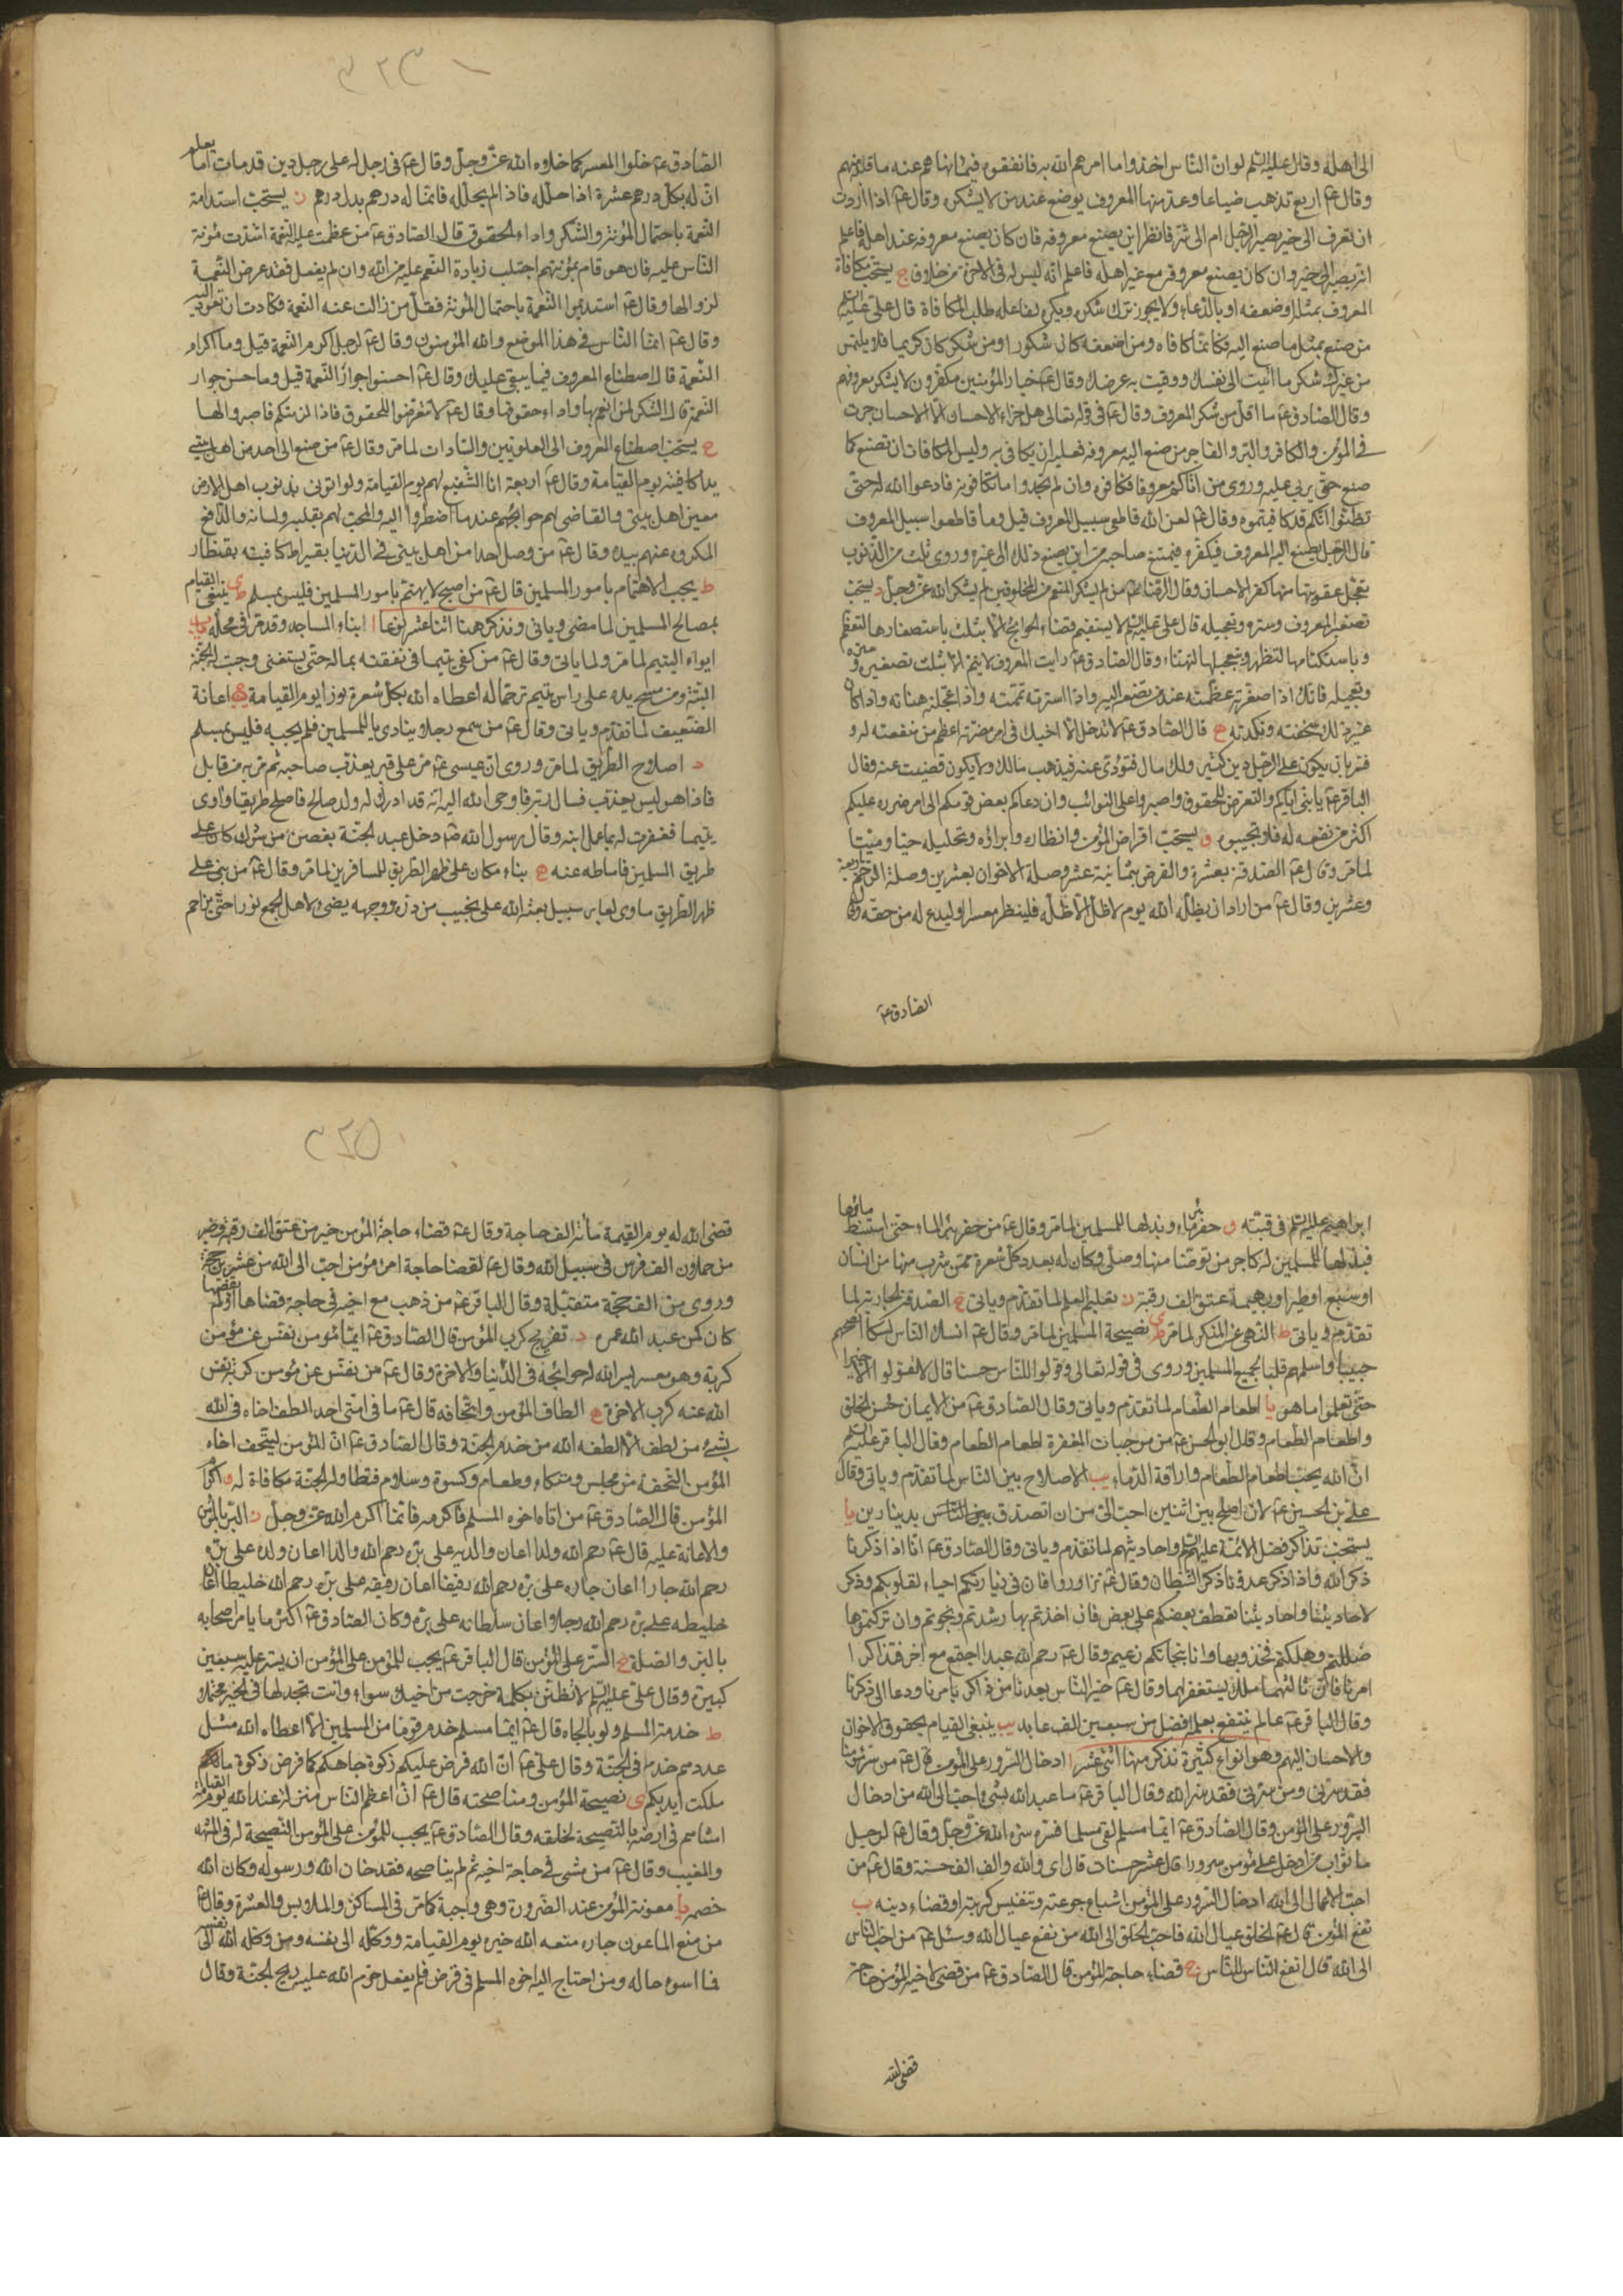 الى اهله وقال عليه السلم لو ان الناس اخذوا ما امرهم الله به فانفقوه فيما نهاهم عنه ما قبله منهم
وقال عۤ اربع تذهب ضياعا وعد منها المعروف يوضع عند من لا يشكره وقال عۤ اذا اردت
ان تعرف الى خير يصير الرجل ام الى شر فانظر اين يصنع معروفه فان كان يصنع معروفه عند اهله فاعلم
انه يصير الى خير وان كان يصنع معروفه مع غير اهله فاعلم انه ليس له في الاخرة من خلاق ج يستحب مكافاة
المعروف بمثله او ضعفه او بالدعاء ولا يجوز ترك شكره ويكره لفاعله طلب المكافاة قال علي عليه السلم
من صنع بمثل ما صنع اليه فكانما كافاه ومن اضعفه كان شكورا ومن شكر كان كريما فلا يلتمس
من غيرك شكر ما اتيت الى نفسك ووقيت به عرضك وقال عۤ خيار المؤمنين مكفرون لا يشكر معروفهم
وقال الصادق عۤ ما اقل من شكر المعروف وقال عۤ في قوله تعالى هل جزاء الاحسان الا الاحسان جرت
في المؤمن والكافر والبر والفاجر من صنع اليه معروف فعليه ان يكافي به وليس المكافات ان تصنع كما
صنع حتى يربي عليه وروى من اتاكم معروفا فكافوه وان لم تجدوا ما تكافونه فادعوا الله له حتى
تظنوا انكم قد كافيتموه وقال عۤ لعن الله قاطعي سبيل المعروف قيل وما قاطعوا سبيل المعروف
قال الرجل يصنع اليه المعروف فيكفره فيمتنع صاحبه من ان يصنع ذلك الى غيره وروى ثلث من الذنوب
تعجل عقوبتها منها كفر الاحسان وقال الرضا عۤ من لم يشكر المنعم من المخلوقين لم يشكر الله عز وجل د يستحب
تصغير المعروف وستره وتعجيله قال علي عليه السلم لا يستقيم قضاء الحوائج الا بثلث باستصغارها لتعظم
وباستكتامها لتظهر وبتعجيلها لتهنئا وقال الصادق عۤ رايت المعروف لا يتم الا بثلث تصغيره وستره
وتعجيله فانك اذا صغرته عظمته عند من تصنع اليه واذا سترته تممته واذا عجلته هناته واذا كان
غير ذلك سخفته ونكدته ه قال الصادق عۤ لا تدخل لاخيك في امر مضرته اعظم من منفعته له و
فسر بان يكون على الرجل دين كثير ولك مال فتؤدي عنه فيذهب مالك ولا يكون قضيت عنه وقال
الباقر عۤ يا بني اياكم والتعرض للحقوق واصبروا على النوائب وان دعاكم بعض قومكم الى امر ضرره عليكم
اكثر من نفعه له فلا تجيبوه و يستحب اقراض المؤمن وانظاره وابراؤه وتحليله حيا وميتا
لما مر وقال عۤ الصدقة بعشرة والقرض بثمانية عشر وصلة الاخوان بعشرين وصلة الرحم باربعة
وعشرين وقال عۤ من اراد ان يظله الله يوم لا ظل الا ظله فلينظر معسرا او ليدع له من حقه وقال
الصادق عۤ
٣٢٣
الصادق عۤ خلوا المعسر كما خلاه الله عز وجل وقال عۤ في رجل له على رجل دين قد مات اما يعلم
ان له بكل درهم عشرة اذا حلله فاذا لم يحلله فانما له درهم بدل درهم ز يستحب استدامة
النعمة باحتمال المؤنة والشكر واداء الحقوق قال الصادق عۤ من عظمت عليه النعمة اشتدت مؤنة
الناس عليه فان هو قام بمؤنتهم اجتلب زيادة النعم عليه من الله وان لم يفعل فقد عرض النعمة
لزوالها وقال عۤ استديموا النعمة باحتمال المؤنة فقل من زالت عنه النعمة فكادت ان تعود اليه
وقال عۤ انما الناس في هذا الموضع والله المؤمنون وقال عۤ لرجل اكرم النعمة قيل وما اكرام
النعمة قال اصطناع المعروف فيما يبقى عليك وقال عۤ احسنوا جوار النعمة قيل وما حسن جوار
النعمة قال الشكر لمن انعم بها واداء حقوقها وقال عۤ لا تتعرضوا للحقوق فاذا لزمتكم فاصبروا لها
ح يستحب اصطناع المعروف الى العلويين والسادات لما مر وقال عۤ من صنع الى احد من اهل بيتي
يدا كافيته يوم القيامة وقال عۤ اربعة انا الشفيع لهم يوم القيامة ولو اتوني بذنوب اهل الارض
معين اهل بيتي والقاضي لهم حوائجهم عند ما اضطروا اليه والمحب لهم بقلبه ولسانه والدافع
المكروه عنهم بيده وقال عۤ من وصل احدا من اهل بيتي في الدنيا بقيراط كافيته بقنطار
ط يجب الاهتمام بامور المسلمين قال عۤ من اصبح لا يهتم بامور المسلمين فليس بمسلم ى ينبغي القيام
بمصالح المسلمين لما مضى وياتي ونذكر هنا اثنا عشر نوعا ا ابناء المساجد وقد مر في محله ب
ايواء اليتيم لما مر ولما ياتي وقال عۤ من كفى يتيما في نفقته بماله حتى يستغني وجبت له الجنة
البتة ومن مسح يده على راس يتيم ترحما له اعطاه الله بكل شعرة نورا يوم القيامة ج اعانة
الضعيف لما تقدم وياتي وقال عۤ من سمع رجلا ينادي يا للمسلمين فلم يجبه فليس بمسلم
د اصلاح الطريق لما مر وروى ان عيسى عۤ مر على قبر يعذب صاحبه ثم مر به من قابل
فاذا هو ليس يعذب فسال ربه فاوحى الله اليه انه قد ادرك له ولد صالح فاصلح طريقا وآوى
يتيما فغفرت له بما عمل ابنه وقال رسول الله صۤ دخل عبد الجنة بغصن من شوك كان على
طريق المسلمين فاماطه عنه ه بناء مكان على ظهر الطريق للمسافرين لما مر وقال عۤ من بنى على
ظهر الطريق ماوى لعابر سبيل بعثه الله على نجيب من در ووجهه يضيء لاهل الجمع نورا حتى يزاحم
ابراهيم عليه السلم في قبته و حفر بئر ماء وبذلها للمسلمين لما مر وقال عۤ من حفر بئر الماء حتى استنبط ماؤها
فبذلها للمسلمين له كاجر من توضا منها وصلى وكان له بعدد كل شعرة ممن شرب منها من انسان
او سبع او طير او بهيمة عتق الف رقبة ز تعليم العلم لما تقدم وياتي ح الصدقة الجارية لما
تقدم وياتي ط النهي عن المنكر لما مر ى نصيحة المسلمين لما مر وقال عۤ انسك الناس نسكا انصحهم
جيبا واسلمهم قلبا لجميع المسلمين وروى في قوله تعالى وقولوا للناس حسنا قال لا تقولوا الا خيرا
حتى تعلموا ما هو يا اطعام الطعام لما تقدم وياتي وقال الصادق عۤ من الايمان حسن الخلق
واطعام الطعام وقال ابو الحسن عۤ من موجبات المغفرة اطعام الطعام وقال الباقر عليه السلم
ان الله يحب اطعام الطعام واراقة الدماء يب الاصلاح بين الناس لما تقدم وياتي وقال
علي بن الحسين عۤ لان اصلح بين اثنين احب الي من ان اتصدق بدينارين يا
يستحب تذاكر فضل الائمة عليهم السلم واحاديثهم لما تقدم وياتي وقال الصادق عۤ انا اذا ذكرنا
ذكر الله واذا ذكر عدونا ذكر الشيطان وقال عۤ تزاوروا فان في زيارتكم احياء لقلوبكم وذكر
لاحاديثنا واحاديثنا تعطف بعضكم على بعض فان اخذتم بها رشدتم ونجوتم وان تركتموها
ضللتم وهلكتم فخذوا بها وانا بنجاتكم زعيم وقال عۤ رحم الله عبدا اجتمع مع اخر فتذاكرا
امرنا فان ثالثهما ملك يستغفر لهما وقال عۤ خير الناس بعدنا من ذاكر بامرنا ودعا الى ذكرنا
وقال الباقر عۤ عالم ينتفع بعلمه افضل من سبعين الف عابد يب ينبغي القيام بحقوق الاخوان
والاحسان اليهم وهو انواع كثيرة نذكر منها اثني عشر ا ادخال السرور على المؤمن قال عۤ من سر مؤمنا
فقد سرني ومن سرني فقد سر الله وقال الباقر عۤ ما عبد الله بشيء احب الى الله من ادخال
السرور على المؤمن وقال الصادق عۤ ايما مسلم لقى مسلما فسره سره الله عز وجل وقال عۤ لرجل
ما ثواب من ادخل على مؤمن سرورا قال عشر حسنات قال اي والله والف الف حسنة وقال عۤ من
احب الاعمال الى الله ادخال السرور على المؤمن اشباع جوعته وتنفيس كربته او قضاء دينه ب
نفع المؤمن قال عۤ الخلق عيال الله فاحب الخلق الى الله من نفع عيال الله وسئل عۤ من احب الناس
الى الله قال انفع الناس للناس ج قضاء حاجة المؤمن قال الصادق عۤ من قضى لاخيه المؤمن حاجة
قضى الله
٣٢٥
قضى الله له يوم القيمة مائة الف حاجة وقال عۤ قضاء حاجة المؤمن خير من عتق الف رقبة وخير
من حملان الف فرس في سبيل الله وقال عۤ لقضا حاجة امرء مؤمن احب الى الله من عشرين حجة
وروى من الف حجة متقبلة وقال الباقر عۤ من ذهب مع اخيه في حاجة قضاها او لم يقضها
كان كمن عبد الله عمره د تفريج كرب المؤمن قال الصادق عۤ ايما مؤمن نفس عن مؤمن
كربة وهو معسر يسر الله له حوائجه في الدنيا والاخرة وقال عۤ من نفس عن مؤمن كربة نفس
الله عنه كرب الاخرة ه الطاف المؤمن واتحافه قال عۤ ما في امتي احد الطف اخاه في الله
بشيء من لطف الا الطفه الله من خدم الجنة وقال الصادق عۤ ان المؤمن ليتحف اخاه
المؤمن التحفة من مجلس ومتكاء وطعام وكسوة وسلام فتطاول الجنة مكافاة له و اكرام
المؤمن قال الصادق عۤ من اتاه اخوه المسلم فاكرمه فانما اكرم الله عز وجل ز البر بالمؤمن
والاعانة عليه قال عۤ رحم الله ولدا اعان والديه على بره رحم الله والدا اعان ولده على بره
رحم الله جارا اعان جاره على بره رحم الله رفيقا اعان رفيقه على بره رحم الله خليطا اعان
خليطه على بره رحم الله رجلا اعان سلطانه على بره وكان الصادق عۤ اكثر ما يامر اصحابه
بالبر والصلة ح الستر على المؤمن قال الباقر عۤ يجب للمؤمن على المؤمن ان يستر عليه سبعين
كبيرة وقال علي عليه السلم لا تظنن بكلمة خرجت من اخيك سواء وانت تجد لها في الخير محملا
ط خدمة المسلم ولو بالجاه قال عۤ ايما مسلم خدم قوما من المسلمين الا اعطاه الله مثل
عددهم خدما في الجنة وقال علي عۤ ان الله فرض عليكم زكوة جاهكم كما فرض زكوة ما
ملكت ايديكم ى نصيحة المؤمن ومناصحته قال عۤ ان اعظم الناس منزلة عند الله يوم القيامة
امشاهم في ارضه بالنصيحة لخلقه وقال الصادق عۤ يجب للمؤمن على المؤمن النصيحة له في المشهد
والمغيب وقال عۤ من مشى في حاجة اخيه ثم لم يناصحه فقد خان الله ورسوله وكان الله
خصمه يا معونة المؤمن عند الضرورة وهي واجبة كما مر في المساكن والملابس والعشرة وقال عۤ
من منع الماعون جاره منعه الله خيره يوم القيامة ووكله الى نفسه ومن وكله الله الى نفسه
فما اسوء حاله ومن احتاج اليه اخوه المسلم في قرض فلم يفعل حرم الله عليه ريح الجنة وقال